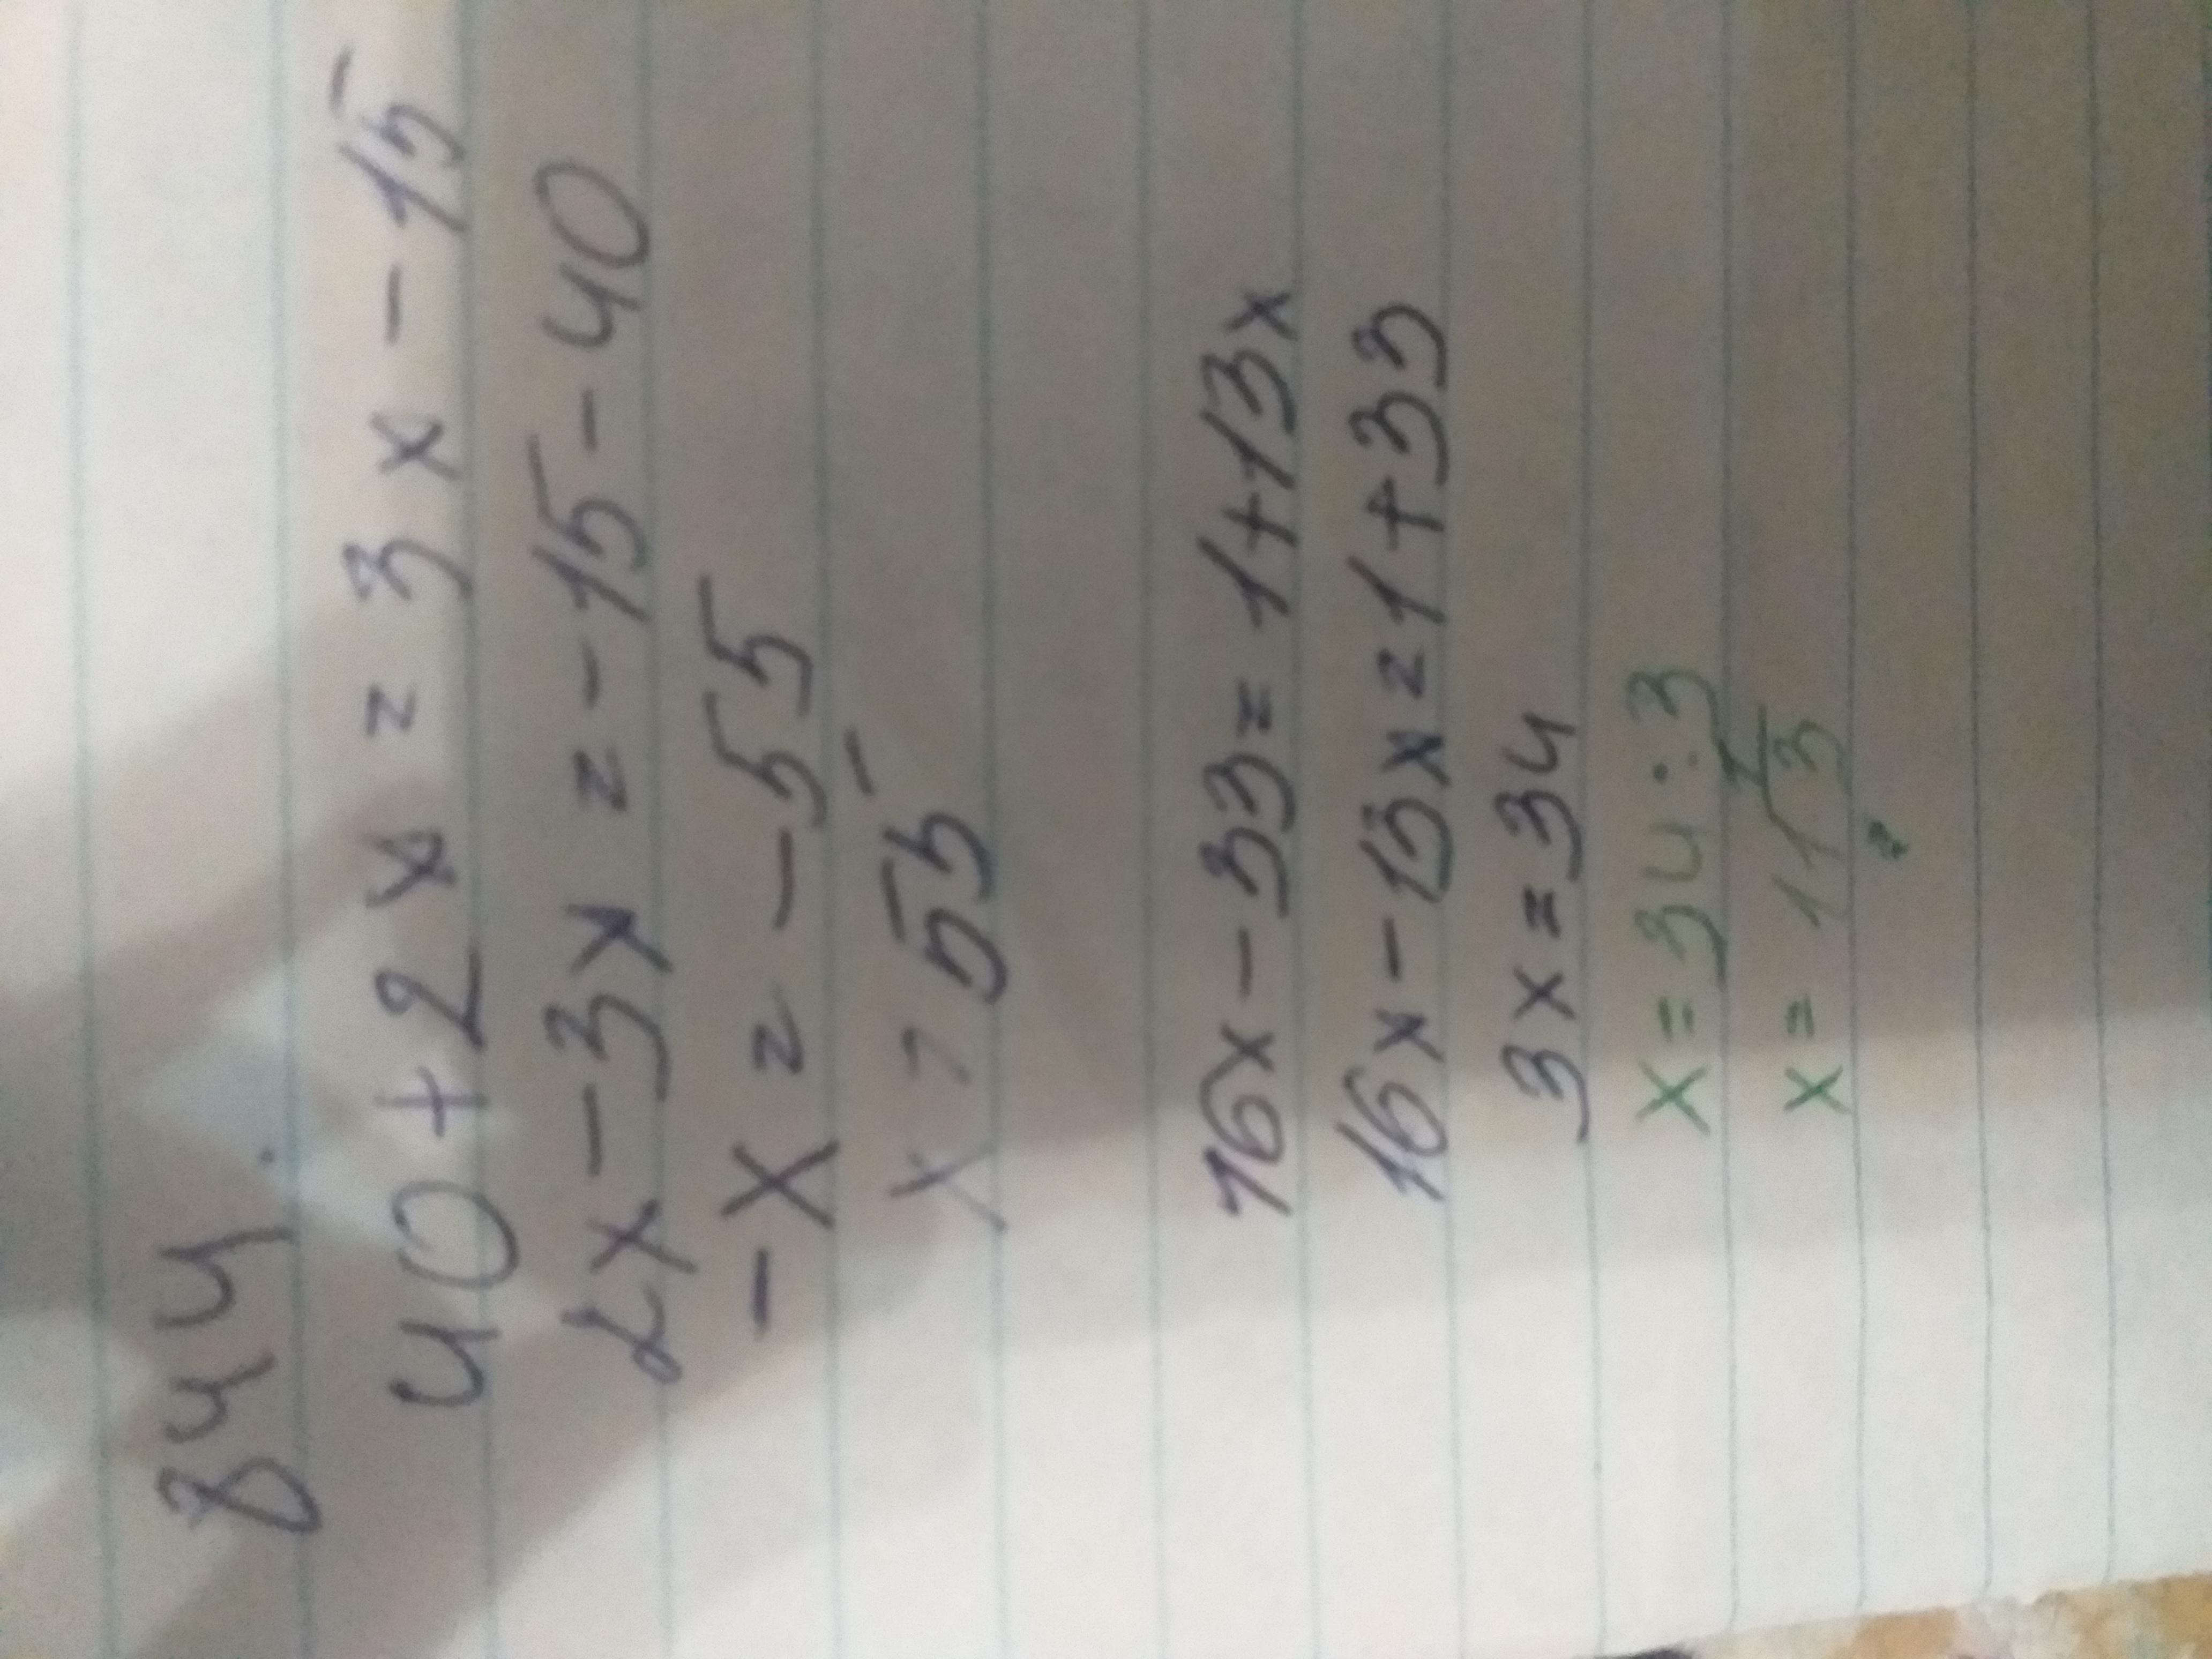 844.
40+2x=3x-15
2x-3x=-15-40
-x=-55
x=55
16x-33=1+13x
16x-13x=1+33
3x=34
x=34:3
x=11 1/3